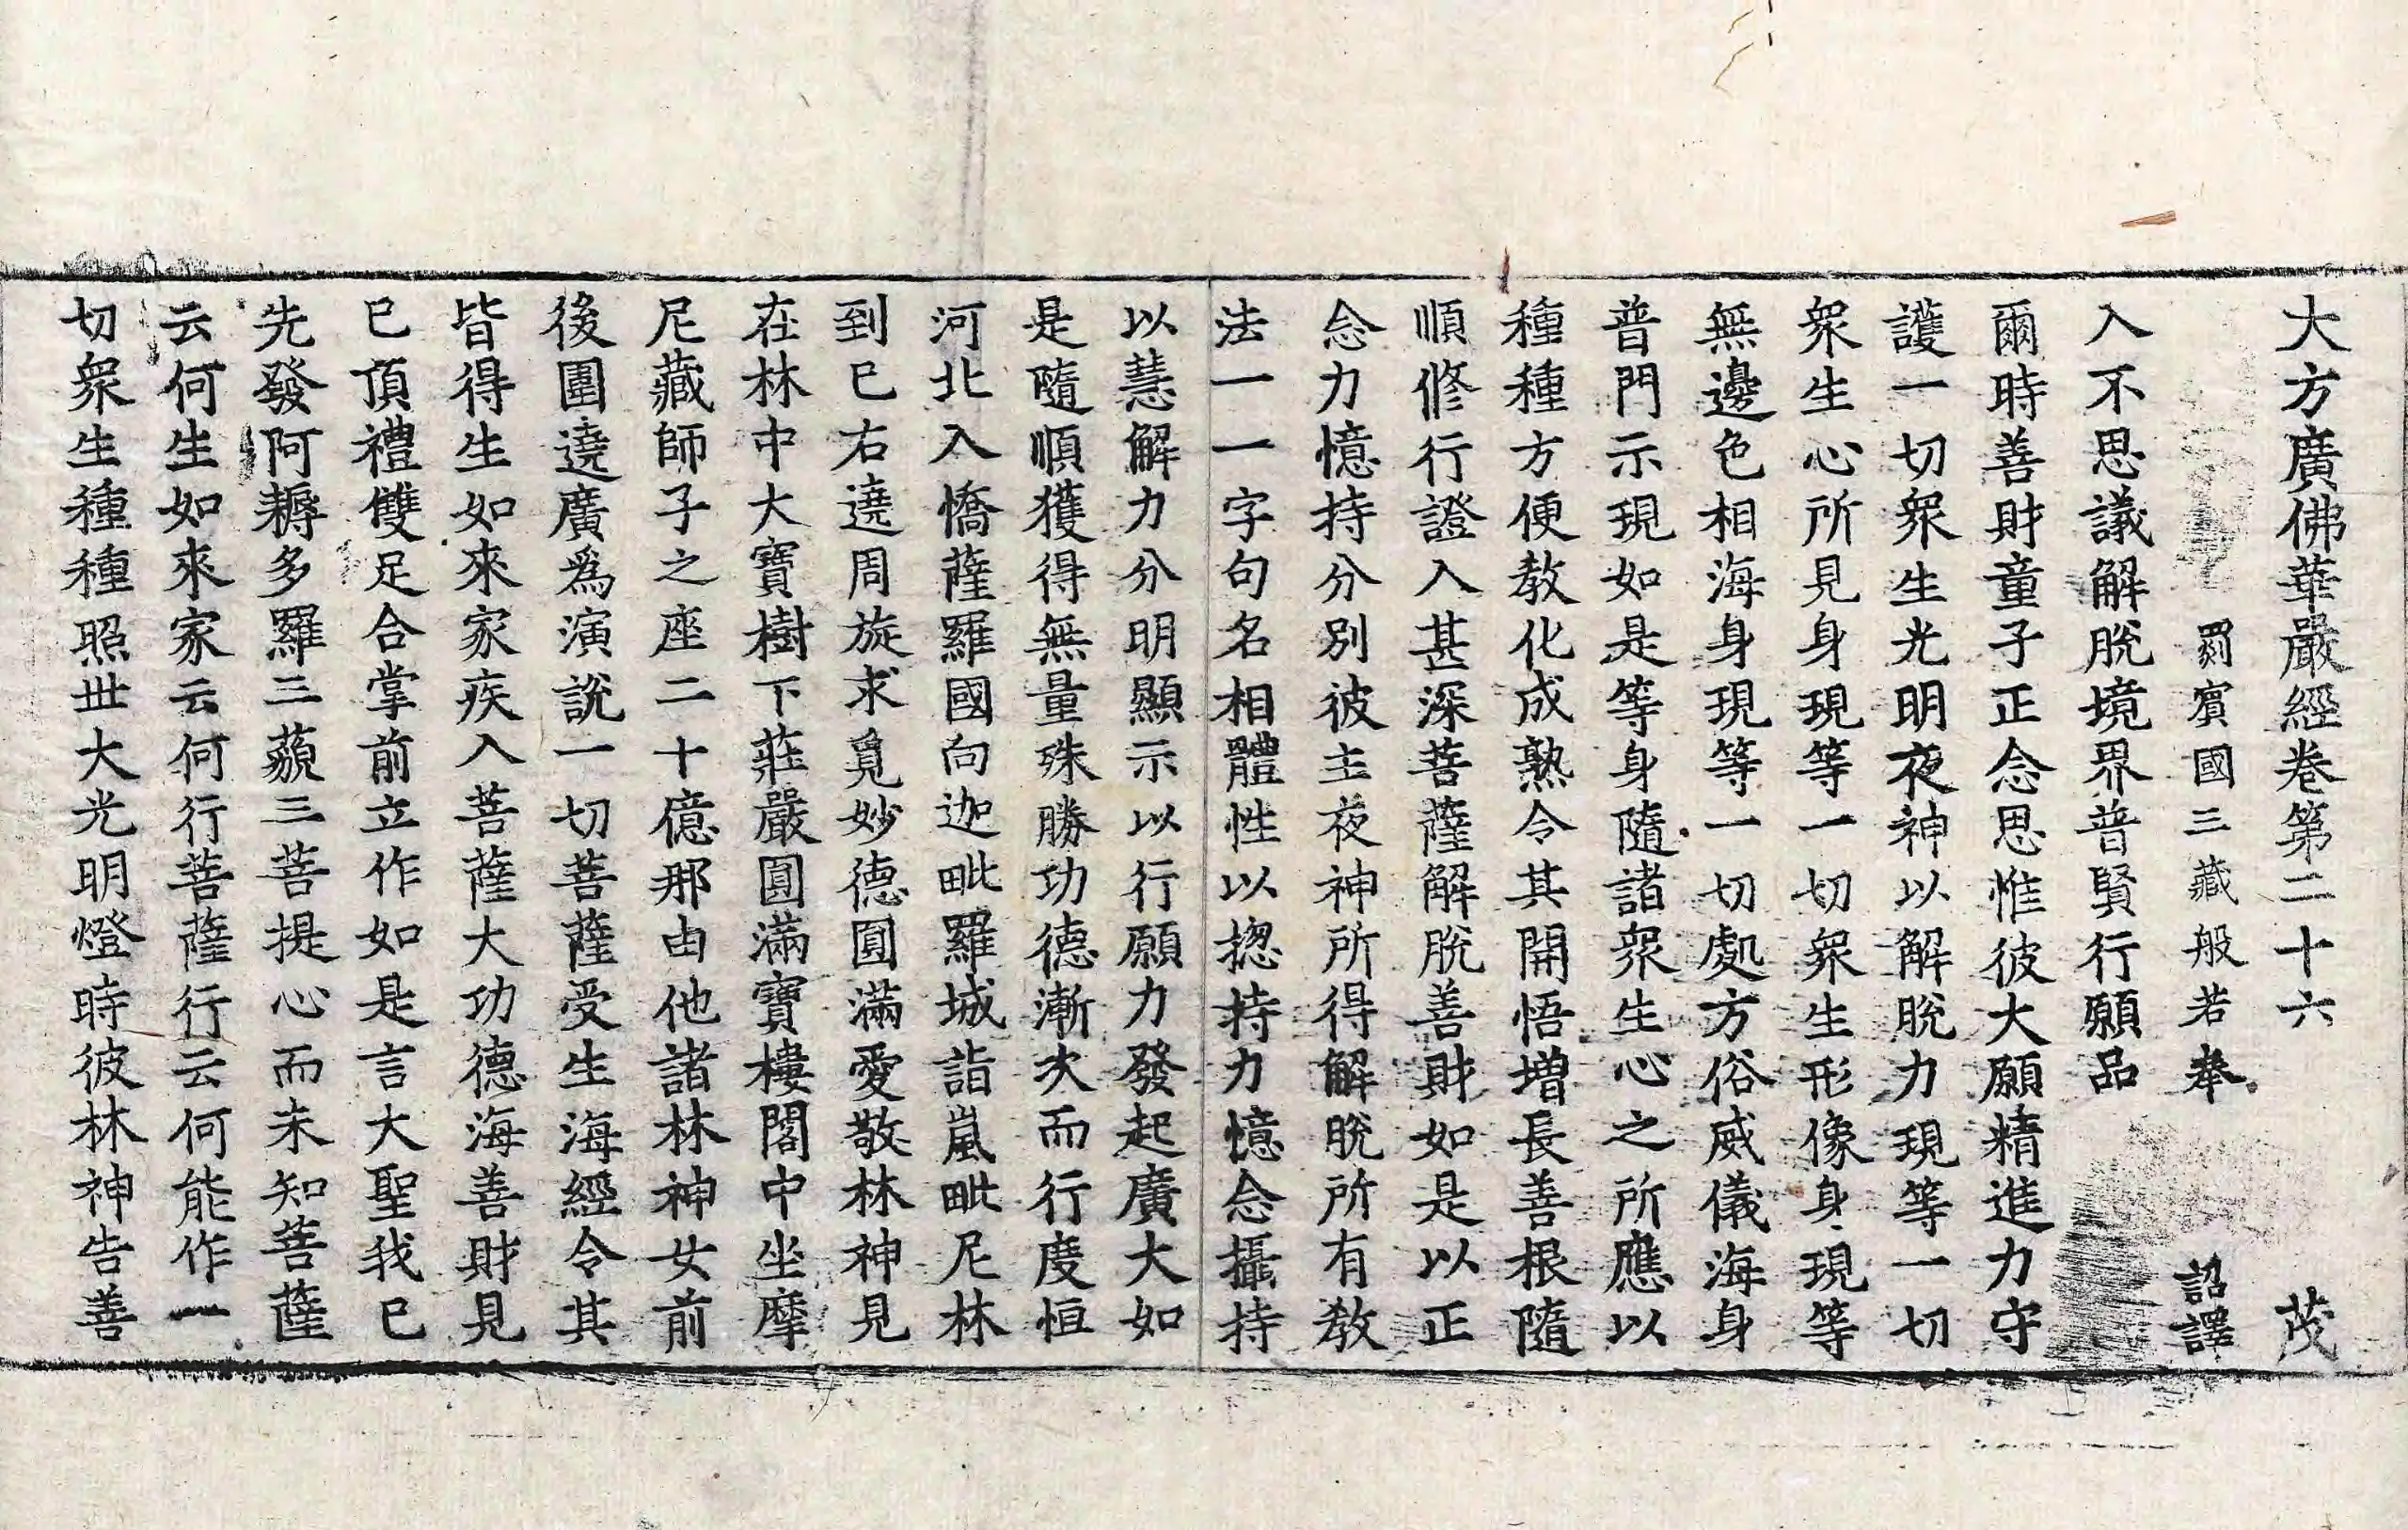 大方廣佛華嚴經卷第二十六 茂
罽賓國三藏般若奉 詔譯
入不思議解脫境界普賢行願品
爾時善財童子正念思惟彼大願精進力守
護一切衆生光明夜神以解脫力現等一切
衆生心所見身現等一切衆生形像身現等
無邊色相海身現等一切處方俗威儀海身
普門示現如是等身隨諸衆生心之所應以
種種方便敎化成熟令其開悟增長善根隨
順修行證入甚深菩薩解脫善財如是以正
念力憶持分別彼主夜神所得解脫所有敎
法一一字句名相體性以揔持力憶念攝持
以慧解力分明顯示以行願力發起廣大如
是隨順獲得無量殊勝功德漸次而行度恒
河北入憍薩羅國向迦毗羅城詣嵐毗尼林
到已右遶周旋求覓妙德圓滿愛敬林神見
在林中大寶樹下莊嚴圓滿寶樓閣中坐摩
尼藏師子之座二十億那由他諸林神女前
後圍遶廣爲演說一切菩薩受生海經令其
皆得生如來家疾入菩薩大功德海善財見
已頂禮雙足合掌前立作如是言大聖我已
先發阿耨多羅三藐三菩提心而未知菩薩
云何生如來家云何行菩薩行云何能作一
切衆生種種照世大光明燈時彼林神告善